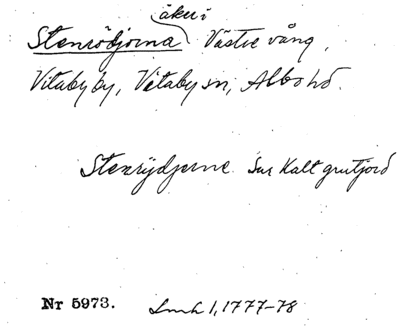 Stenrödjorna åker i Västre vång,
Vitaby by, Vitaby sn, Albo hd.
Stenrydjerne Sur Kalt grutjord
Nr 5973. Lmh 1, 1777-78